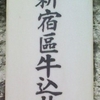 新宿區牛込